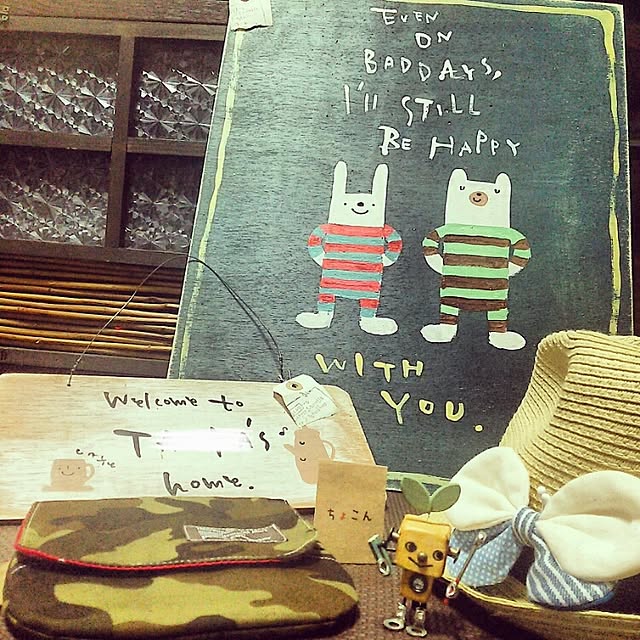 EVEN
ON
BAD DAYS,
I'll STILL
BE HAPPY
WITH
YOU.
Welcome to
home.
ちょこん